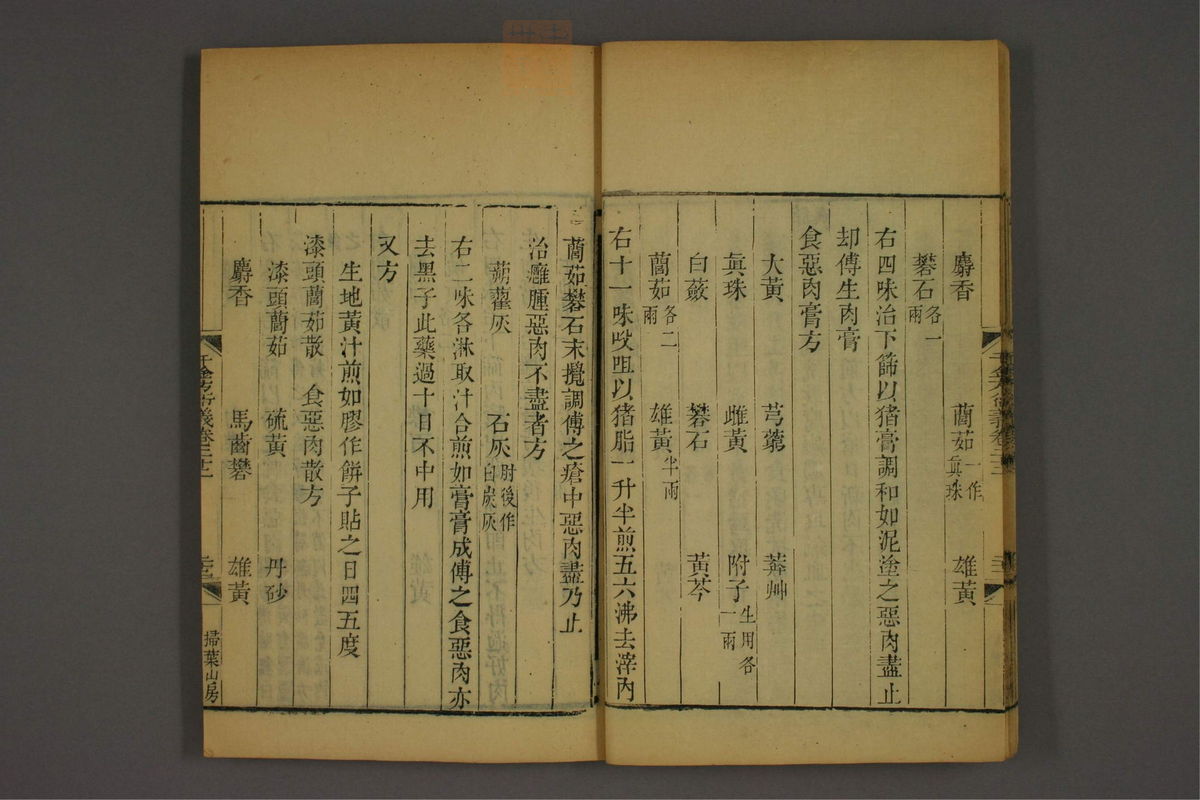 麝香　藺茹一作真珠　雄黃
礬石各一兩
右四味治下篩以猪膏調和如泥塗之惡肉盡止
却傅生肉膏
食惡肉膏方
大黃　芎藭　莽艸
真珠　雌黃　附子生用各一兩
白蘞　礬石　黃芩
藺茹各二兩　雄黃半兩
右十一味㕮咀以猪脂一升半煎五六沸去滓內
藺茹礬石末攪調傅之瘡中惡肉盡乃止
治癰腫惡肉不盡者方
蒴藋灰　石灰肘後作白炭灰
右二味各淋取汁合煎如膏膏成傅之食惡肉亦
去黑子此藥過十日不中用
又方
生地黃汁煎如膠作餅子貼之日四五度
漆頭藺茹散　食惡肉散方
漆頭藺茹　硫黃　丹砂
麝香　馬齒礬　雄黃
千金方衍義卷二十二
掃葉山房